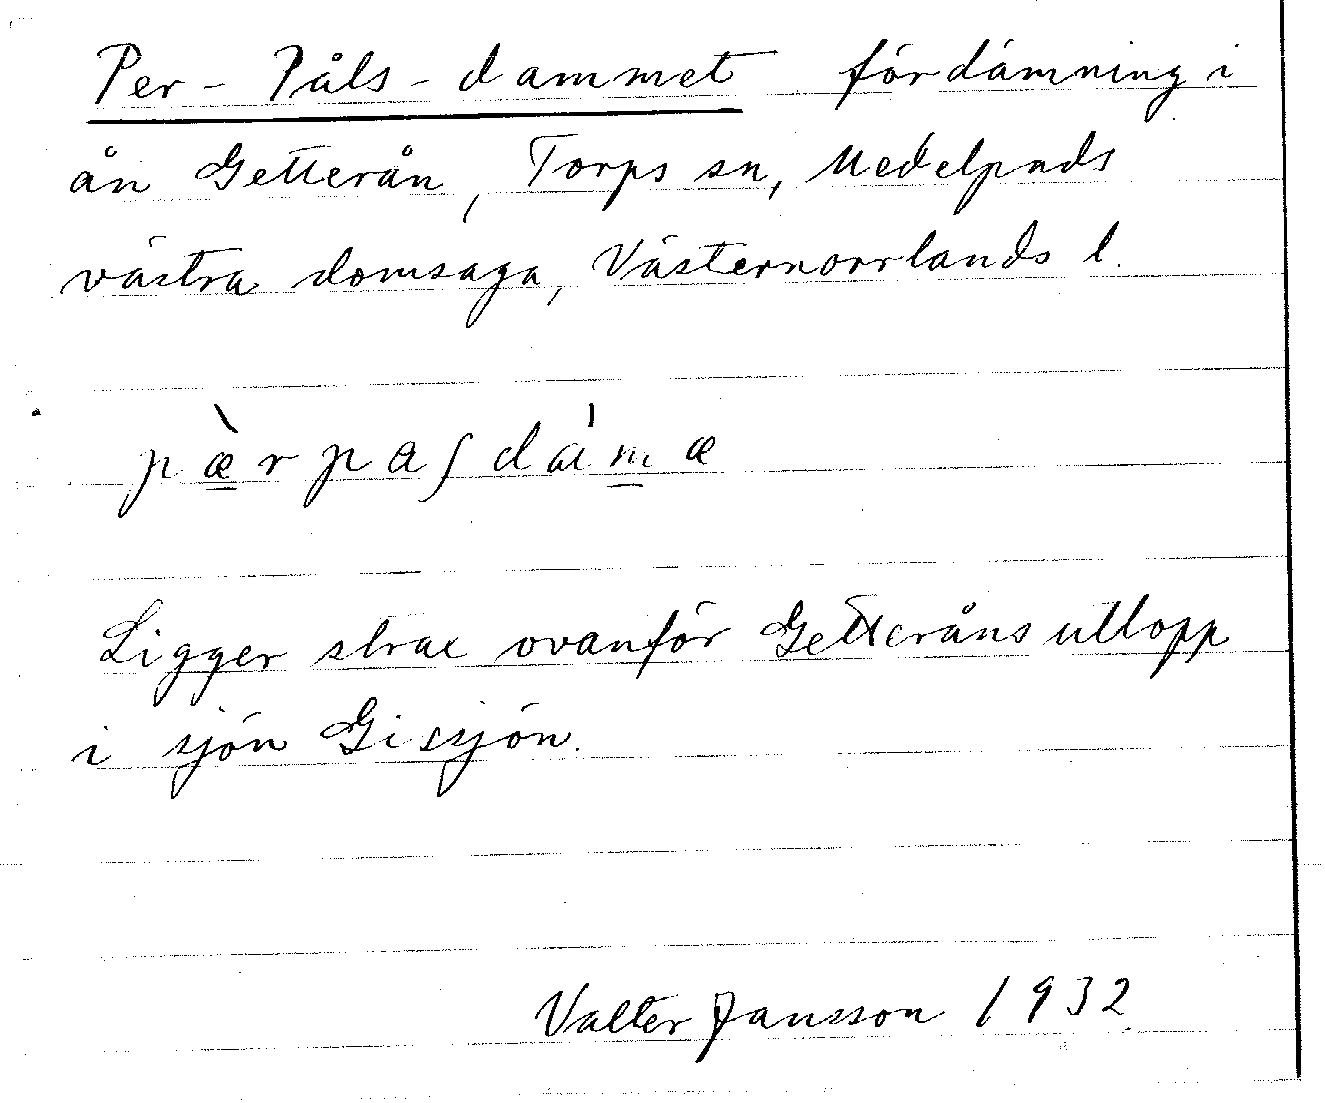 Per-Påls-dammet fördämning i
ån Getterån, Torps sn, Medelpads
västra domsaga, Västernorrlands l.
pæ̀rpaʃdámæ
Ligger strax ovanför Getteråns utlopp
i sjön Gissjön.
Valter Jansson 1932